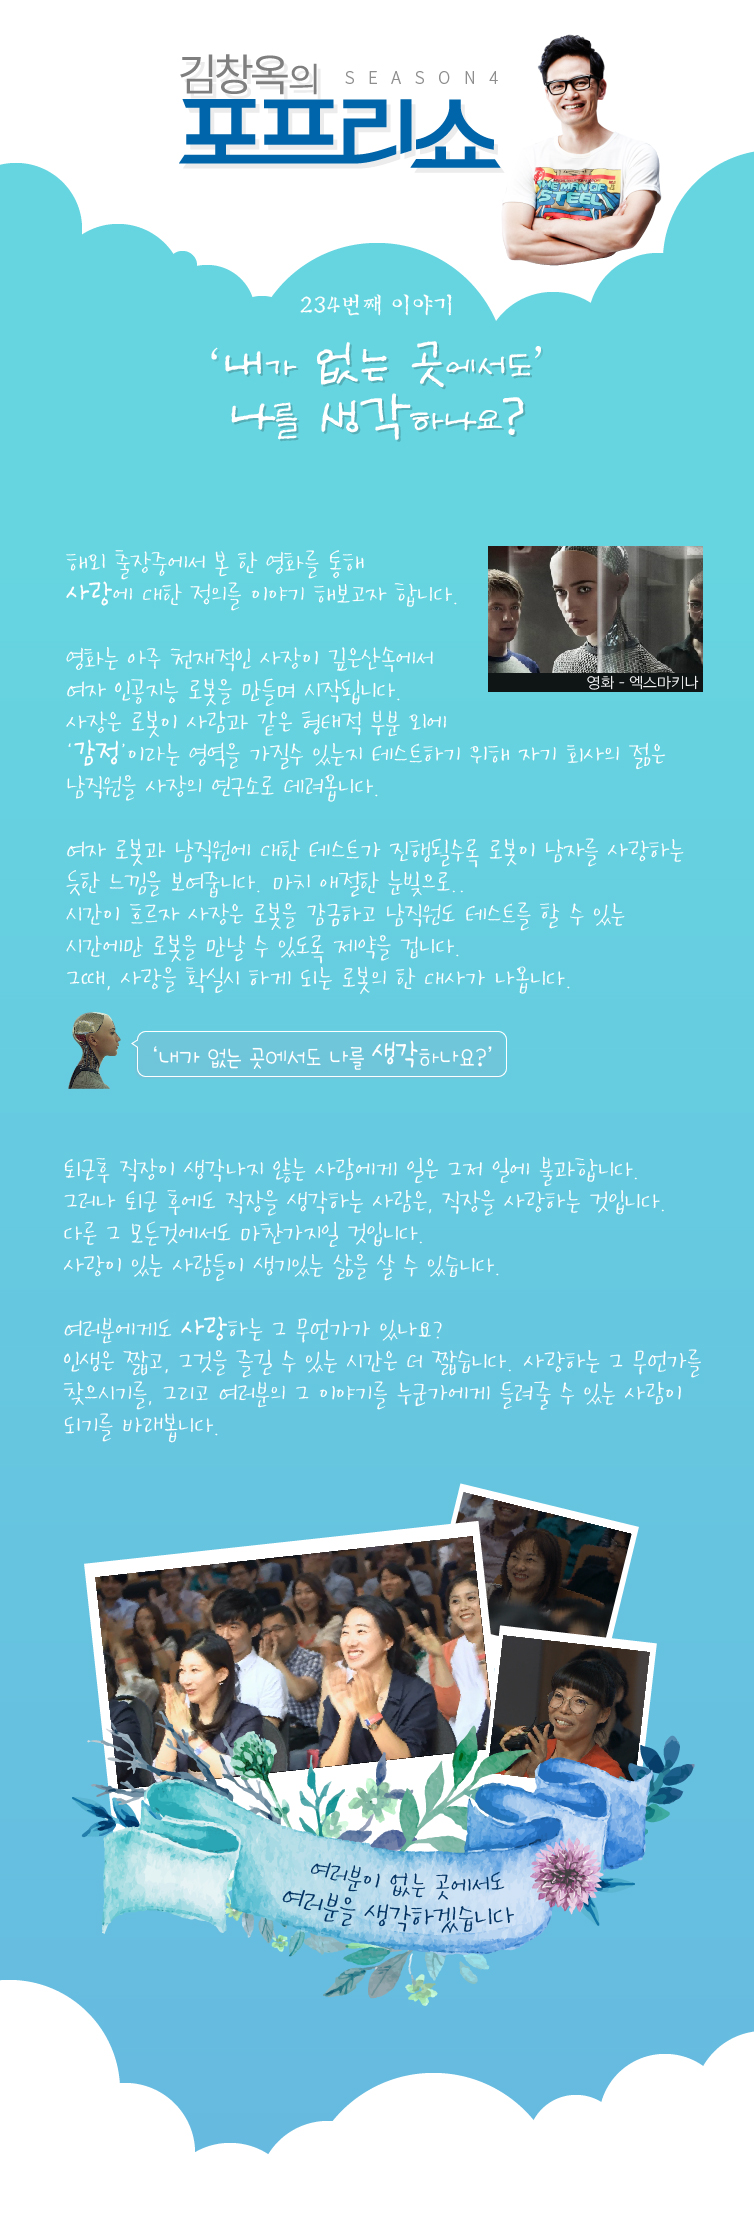 김창옥의
SEASON4
포프리쇼
THE MAN OF
STEEL
234번째 이야기
‘내가 없는 곳에서도’
나를 생각하나요?
해외 출장중에서 본 한 영화를 통해
사랑에 대한 정의를 이야기 해보고자 합니다.
영화 - 엑스마키나
영화는 아주 천재적인 사장이 깊은산속에서
여자 인공지능 로봇을 만들며 시작됩니다.
사장은 로봇이 사람과 같은 형태적 부분 외에
‘감정’이라는 영역을 가질수 있는지 테스트하기 위해 자기 회사의 젊은
남직원을 사장의 연구소로 데려옵니다.
여자 로봇과 남직원에 대한 테스트가 진행될수록 로봇이 남자를 사랑하는
듯한 느낌을 보여줍니다. 마치 애절한 눈빛으로..
시간이 흐르자 사장은 로봇을 감금하고 남직원도 테스트를 할 수 있는
시간에만 로봇을 만날 수 있도록 제약을 겁니다.
그때, 사랑을 확실시 하게 되는 로봇의 한 대사가 나옵니다.
‘내가 없는 곳에서도 나를 생각하나요?’
퇴근후 직장이 생각나지 않는 사람에게 일은 그저 일에 불과합니다.
그러나 퇴근 후에도 직장을 생각하는 사람은, 직장을 사랑하는 것입니다.
다른 그 모든것에서도 마찬가지일 것입니다.
사랑이 있는 사람들이 생기있는 삶을 살 수 있습니다.
여러분에게도 사랑하는 그 무언가가 있나요?
인생은 짧고, 그것을 즐길 수 있는 시간은 더 짧습니다. 사랑하는 그 무언가를
찾으시기를, 그리고 여러분의 그 이야기를 누군가에게 들려줄 수 있는 사람이
되기를 바래봅니다.
여러분이 없는 곳에서도
여러분을 생각하겠습니다